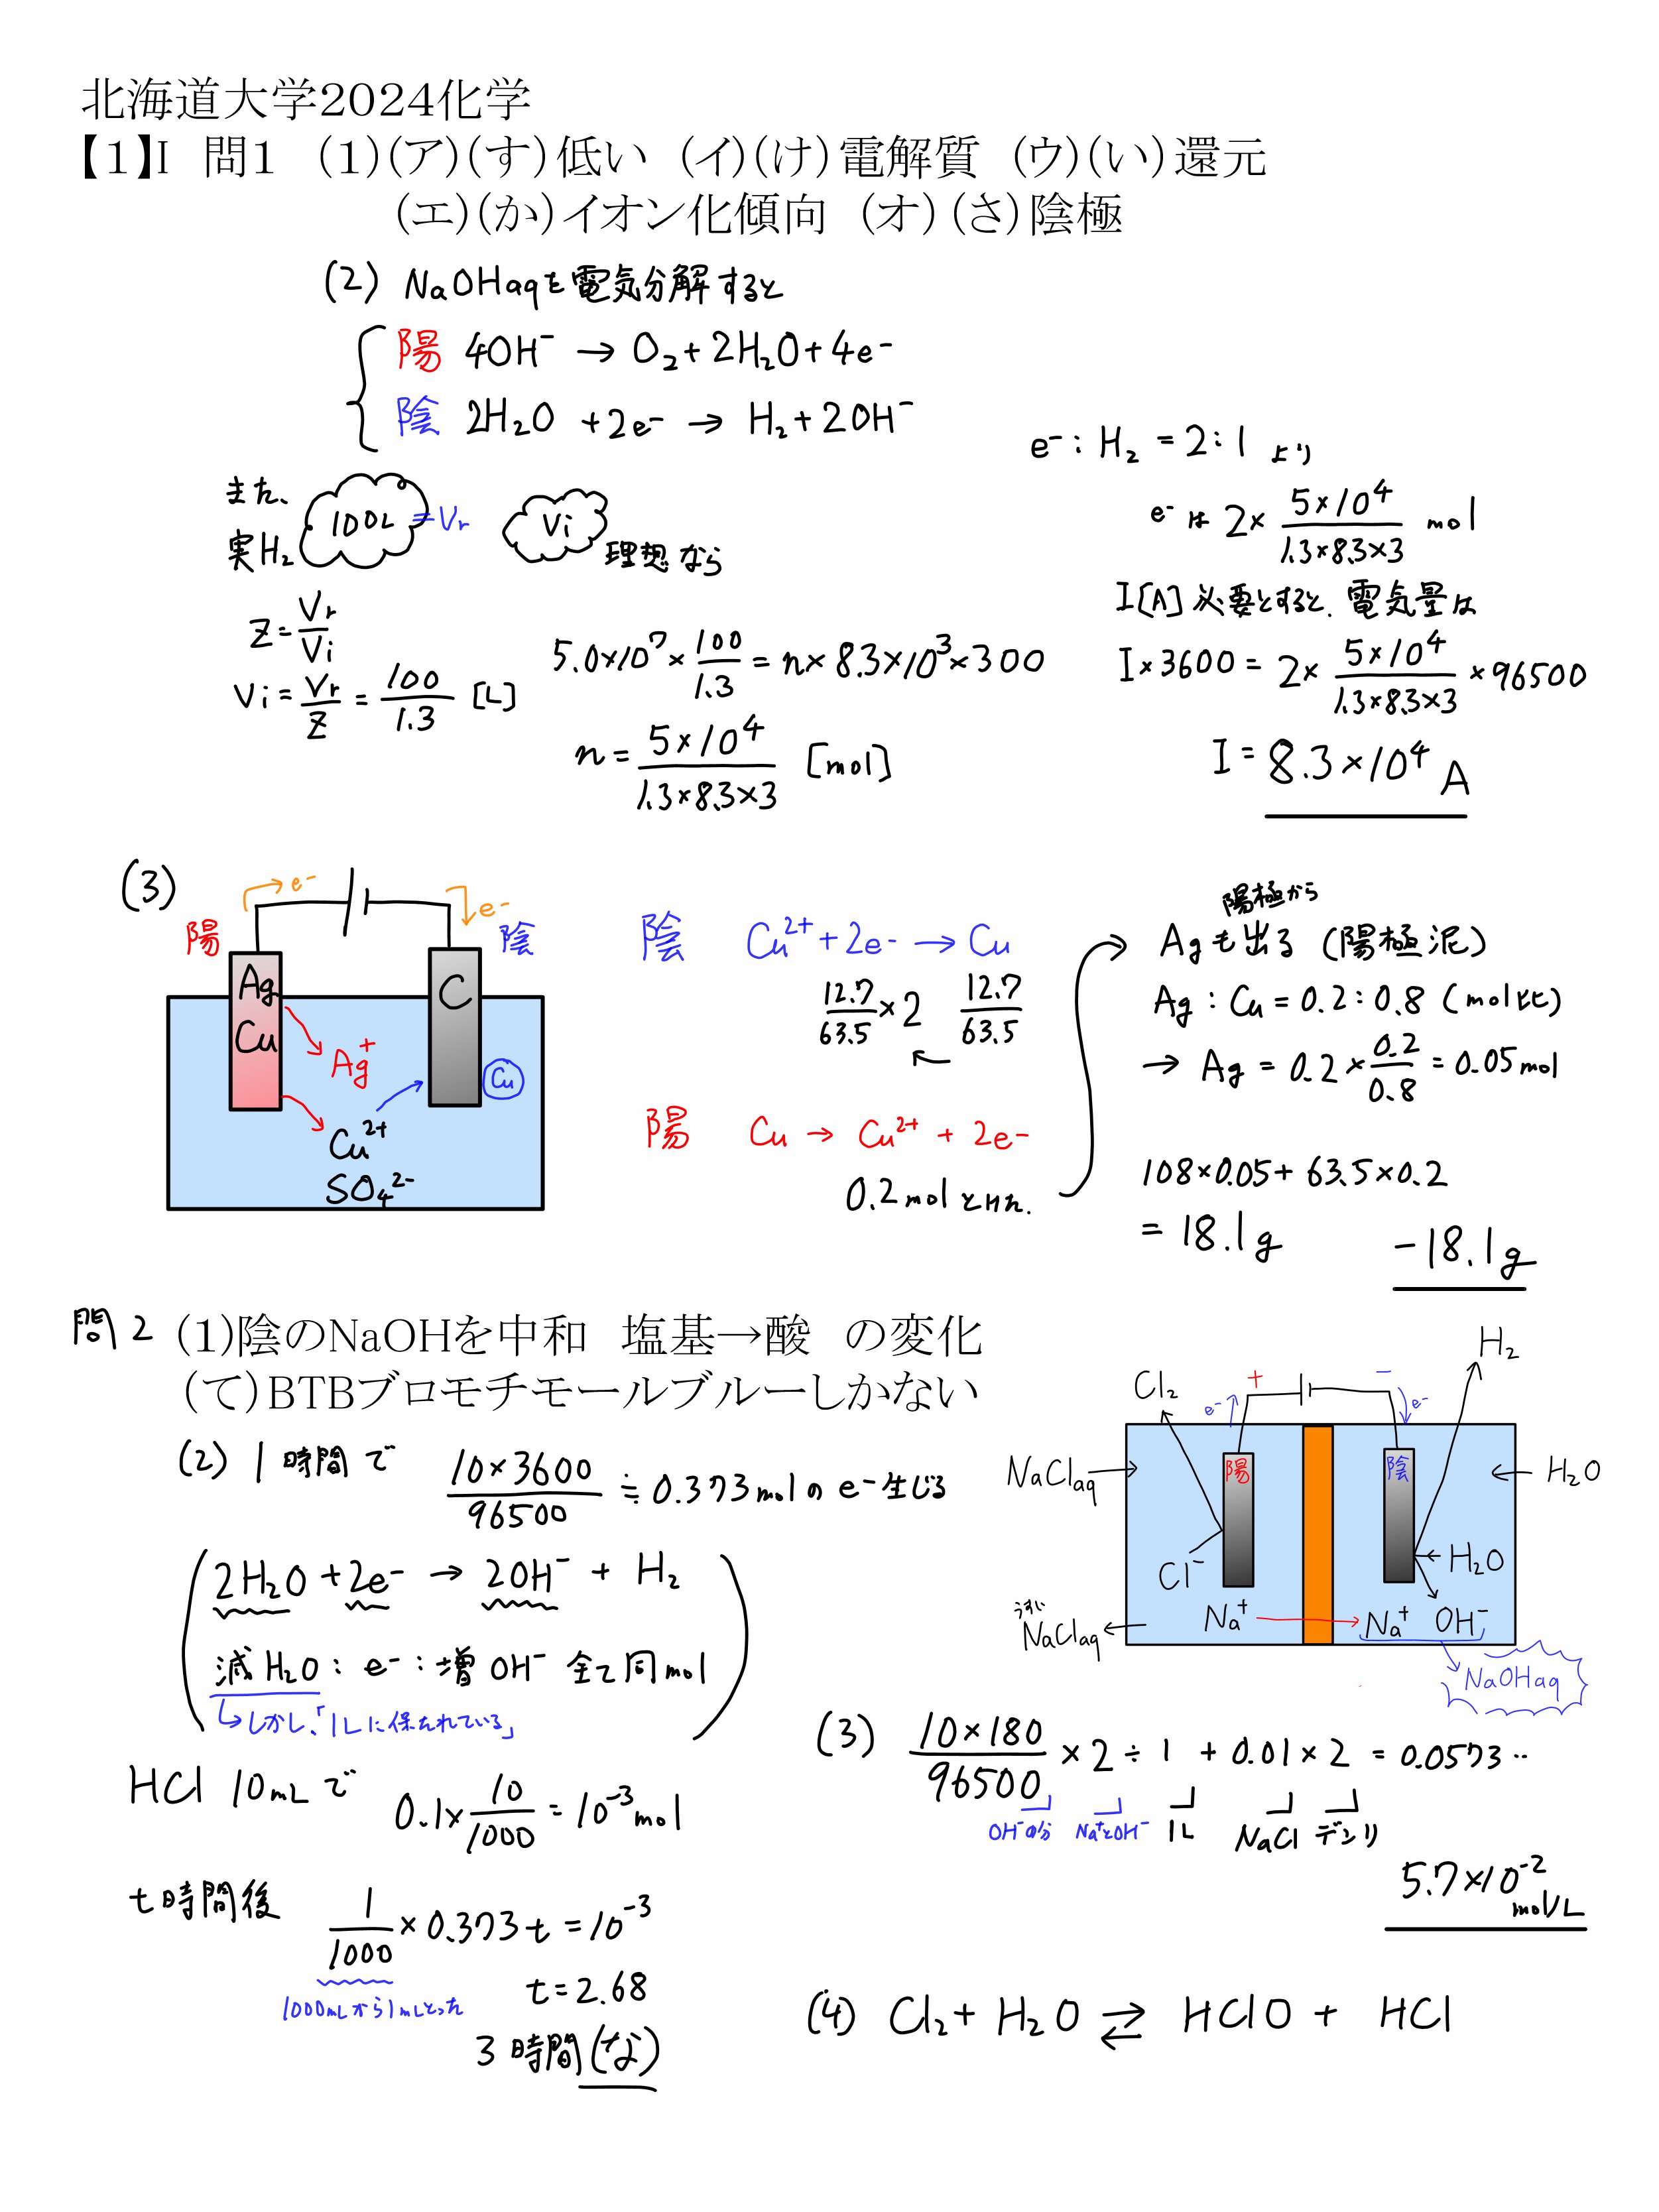 北海道大学2024化学
【1】I 問1 (1)(ア)(す)低い (イ)(け)電解質 (ウ)(い)還元
(エ)(か)イオン化傾向 (オ)(さ)陰極
(2) NaOHaqを電気分解すると
陽 4OH⁻ → O₂+2H₂O+4e⁻
陰 2H₂O +2e⁻ → H₂+2OH⁻
また、
実H₂ 100L =Vr Vi 理想なら
Z=Vr/Vi
Vi=Vr/Z=100/1.3 [L]
5.0×10⁷×100/1.3=n×8.3×10³×300
n=5×10⁴/1.3×8.3×3 [mol]
e⁻:H₂=2:1 より
e⁻は 2×5×10⁴/1.3×8.3×3 mol
I[A]必要とすると、電気量は
I×3600=2×5×10⁴/1.3×8.3×3×96500
I=8.3×10⁴ A
(3)
e⁻ e⁻
陽 陰
Ag C
Cu
Ag⁺ Cu
Cu²⁺
SO₄²⁻
陰 Cu²⁺+2e⁻ → Cu
12.7/63.5×2 12.7/63.5
陽 Cu → Cu²⁺ + 2e⁻
0.2molとけた.
陽極から
Agも出る(陽極泥)
Ag:Cu=0.2:0.8(mol比)
→ Ag=0.2×0.2/0.8=0.05mol
108×0.05+63.5×0.2
=18.1g
-18.1g
問2 (1)陰のNaOHを中和 塩基→酸 の変化
(て)BTBブロモチモールブルーしかない
(2) 1時間で 10×3600/96500≒0.373molのe⁻生じる
2H₂O+2e⁻ → 2OH⁻ + H₂
減H₂O:e⁻:増OH⁻ 全て同mol
↳しかし、「1Lに保たれている」
HCl 10mLで 0.1×10/1000=10⁻³mol
t時間後 1/1000×0.373t=10⁻³
1000mLから1mLとった
t=2.68
3時間(な)
H₂
Cl₂ + −
e⁻ e⁻
NaClaq 陽 陰 H₂O
Cl⁻ H₂O
うすい
NaClaq Na⁺ Na⁺ OH⁻
NaOHaq
(3) 10×180/96500×2÷1+0.01×2=0.0573‥
OH⁻の分 Na⁺とOH⁻ 1L NaCl デンリ
5.7×10⁻² mol/L
(4) Cl₂+H₂O ⇄ HClO + HCl